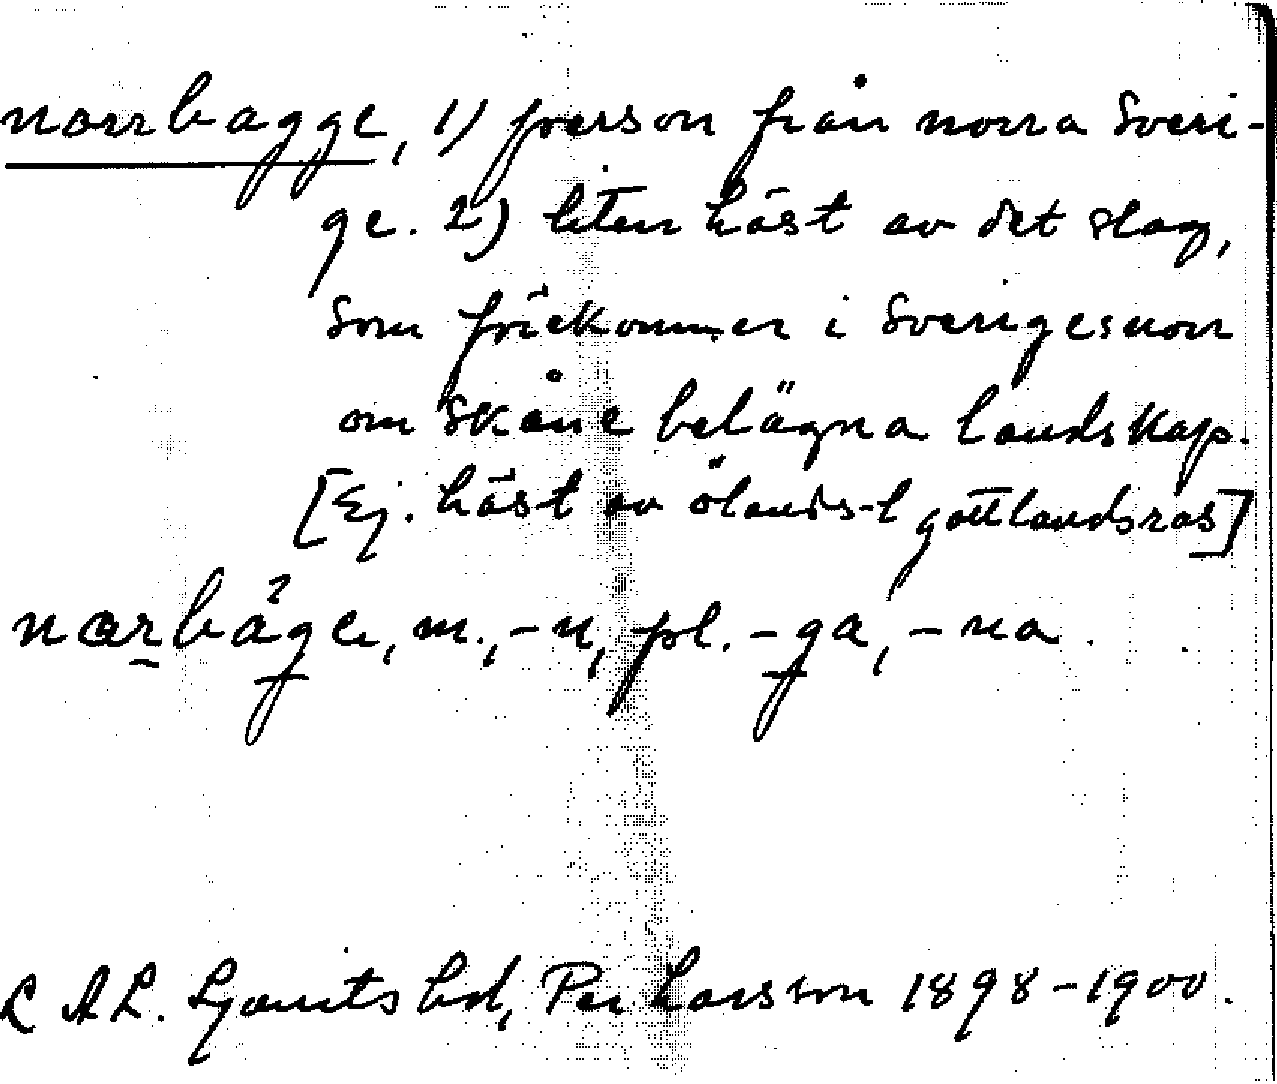 norrbagge, 1) person från norra Sveri-
ge. 2) liten häst av det slag,
som förekommer i Sveriges norr
om Skåne belägna landskap.
[Ej. häst av ölands- l gottlandsras]
båge, m., -n, pl. -ga, -na.
L A L. Ljunits hd, Per Larsson 1898-1900.